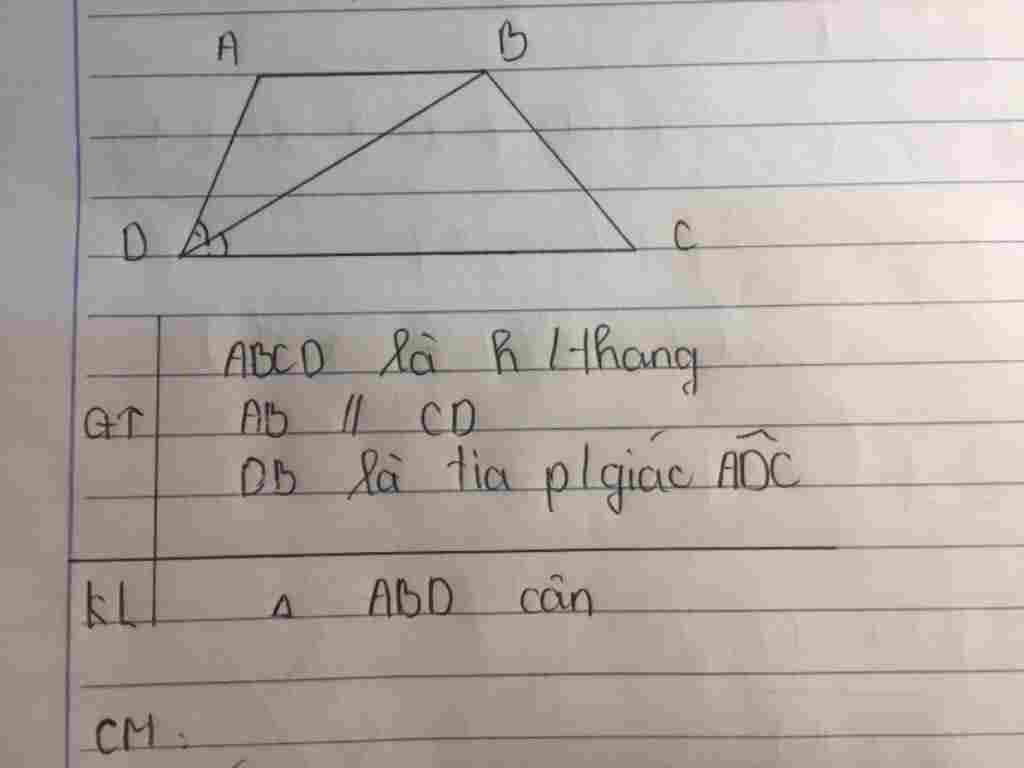 A B
D C
ABCD là h/thang
GT AB // CD
DB là tia p/giác ADC
KL Δ ABD cân
CM: